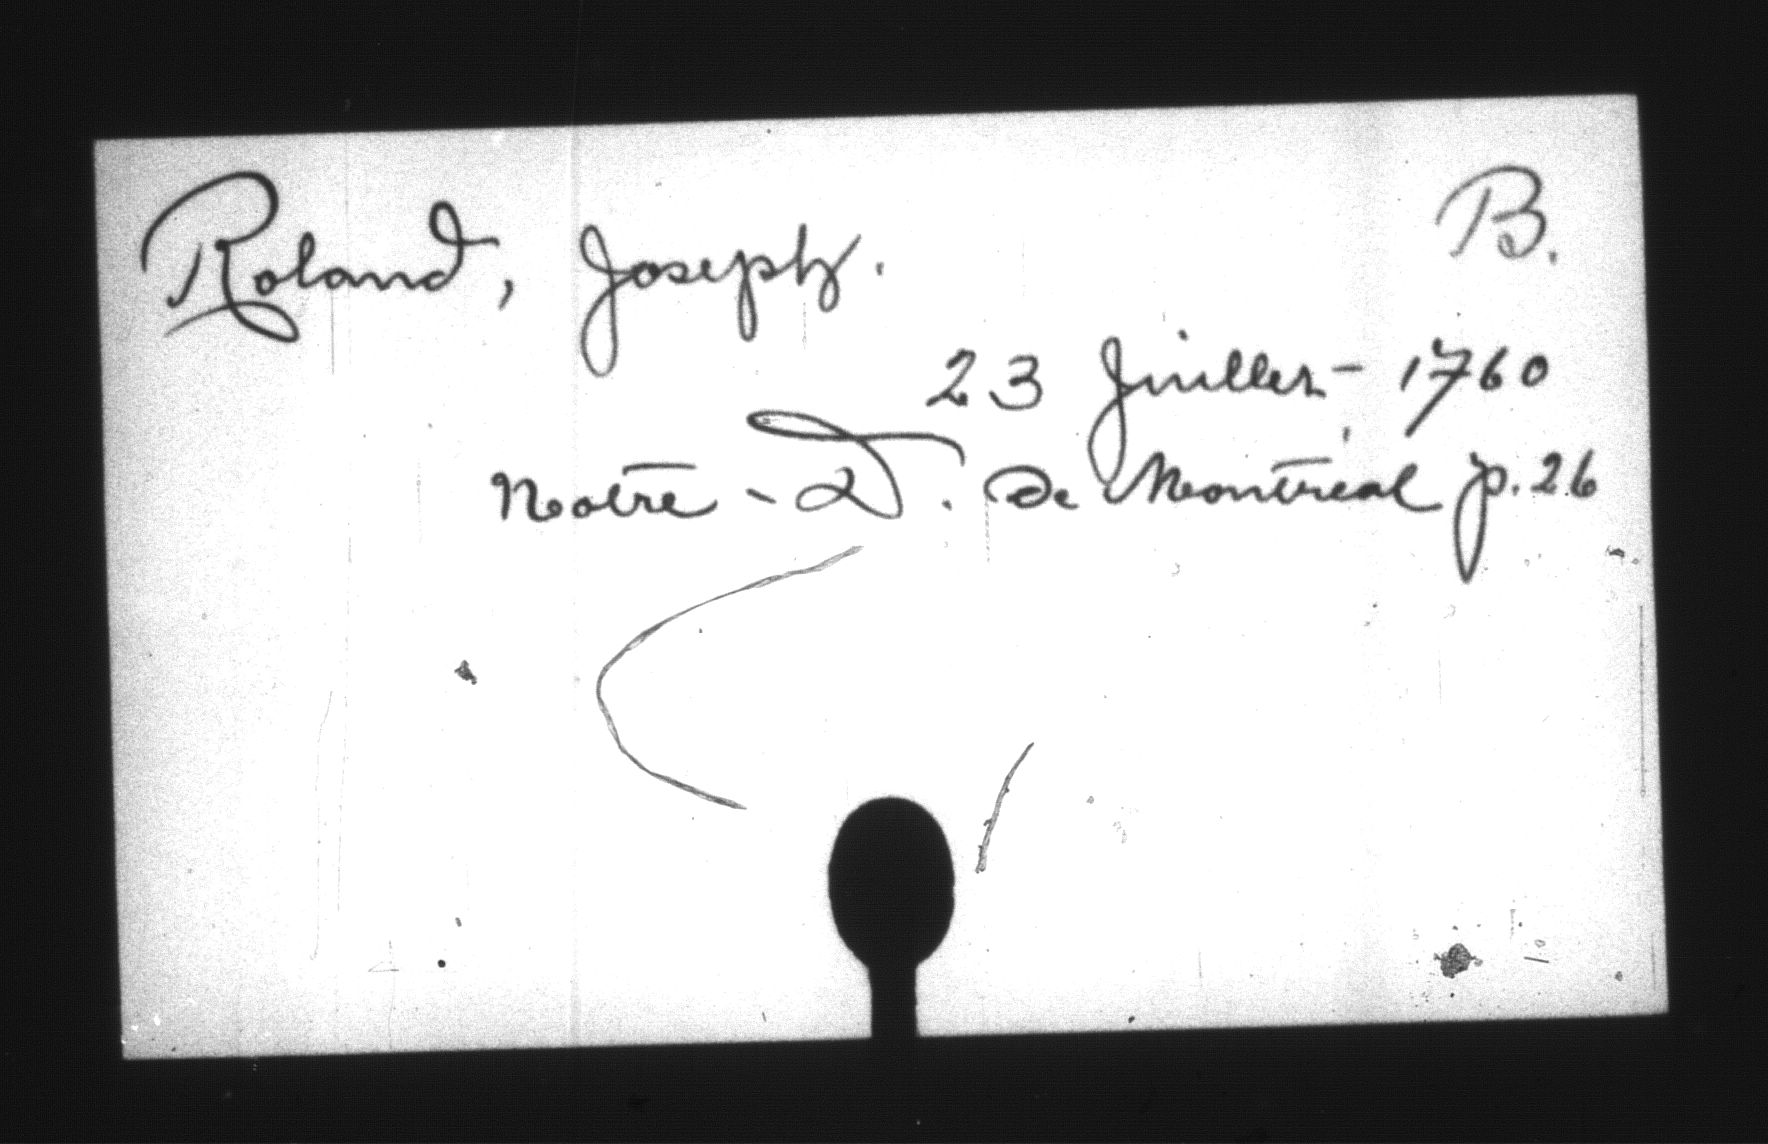 Roland, Joseph. B.
23 Juillet 1760
Notre-D. de Montréal p. 26